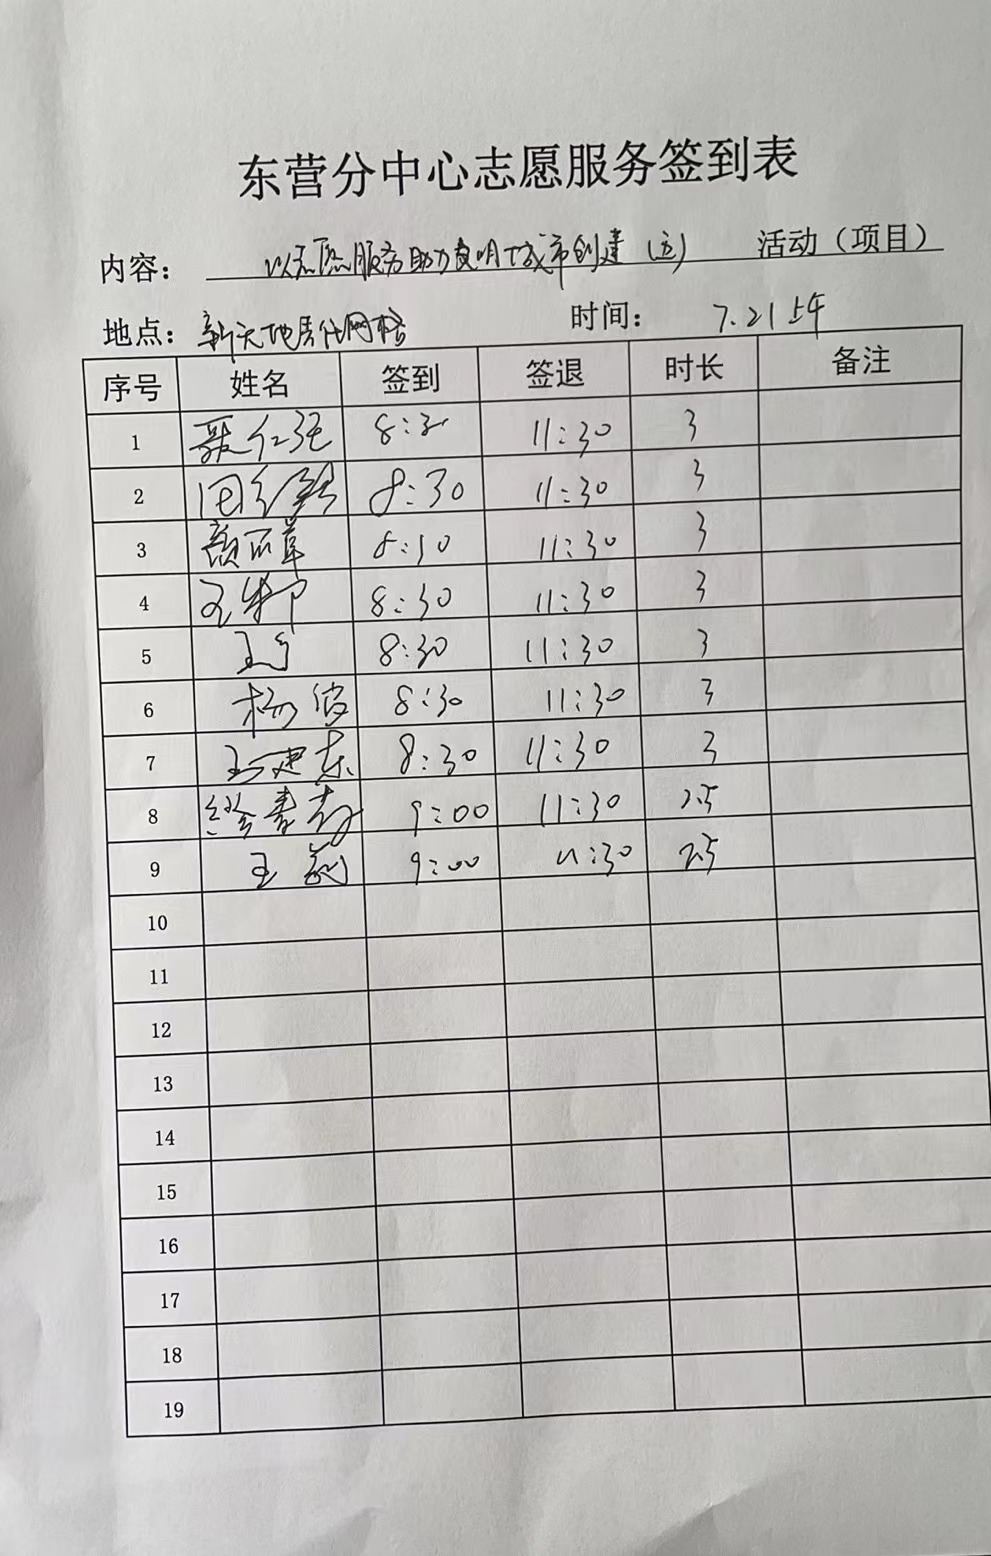 东营分中心志愿服务签到表
内容： 以志愿服务助力文明城市创建 活动（项目）
地点： 新天地 网格 时间： 7.21上午
序号 姓名 签到 签退 时长 备注
1 8:30 11:30 3
2 8:30 11:30 3
3 颜 8:30 11:30 3
4 王 8:30 11:30 3
5 王 8:30 11:30 3
6 杨波 8:30 11:30 3
7 王建东 8:30 11:30 3
8 9:00 11:30 2.5
9 王 9:00 11:30 2.5
10
11
12
13
14
15
16
17
18
19